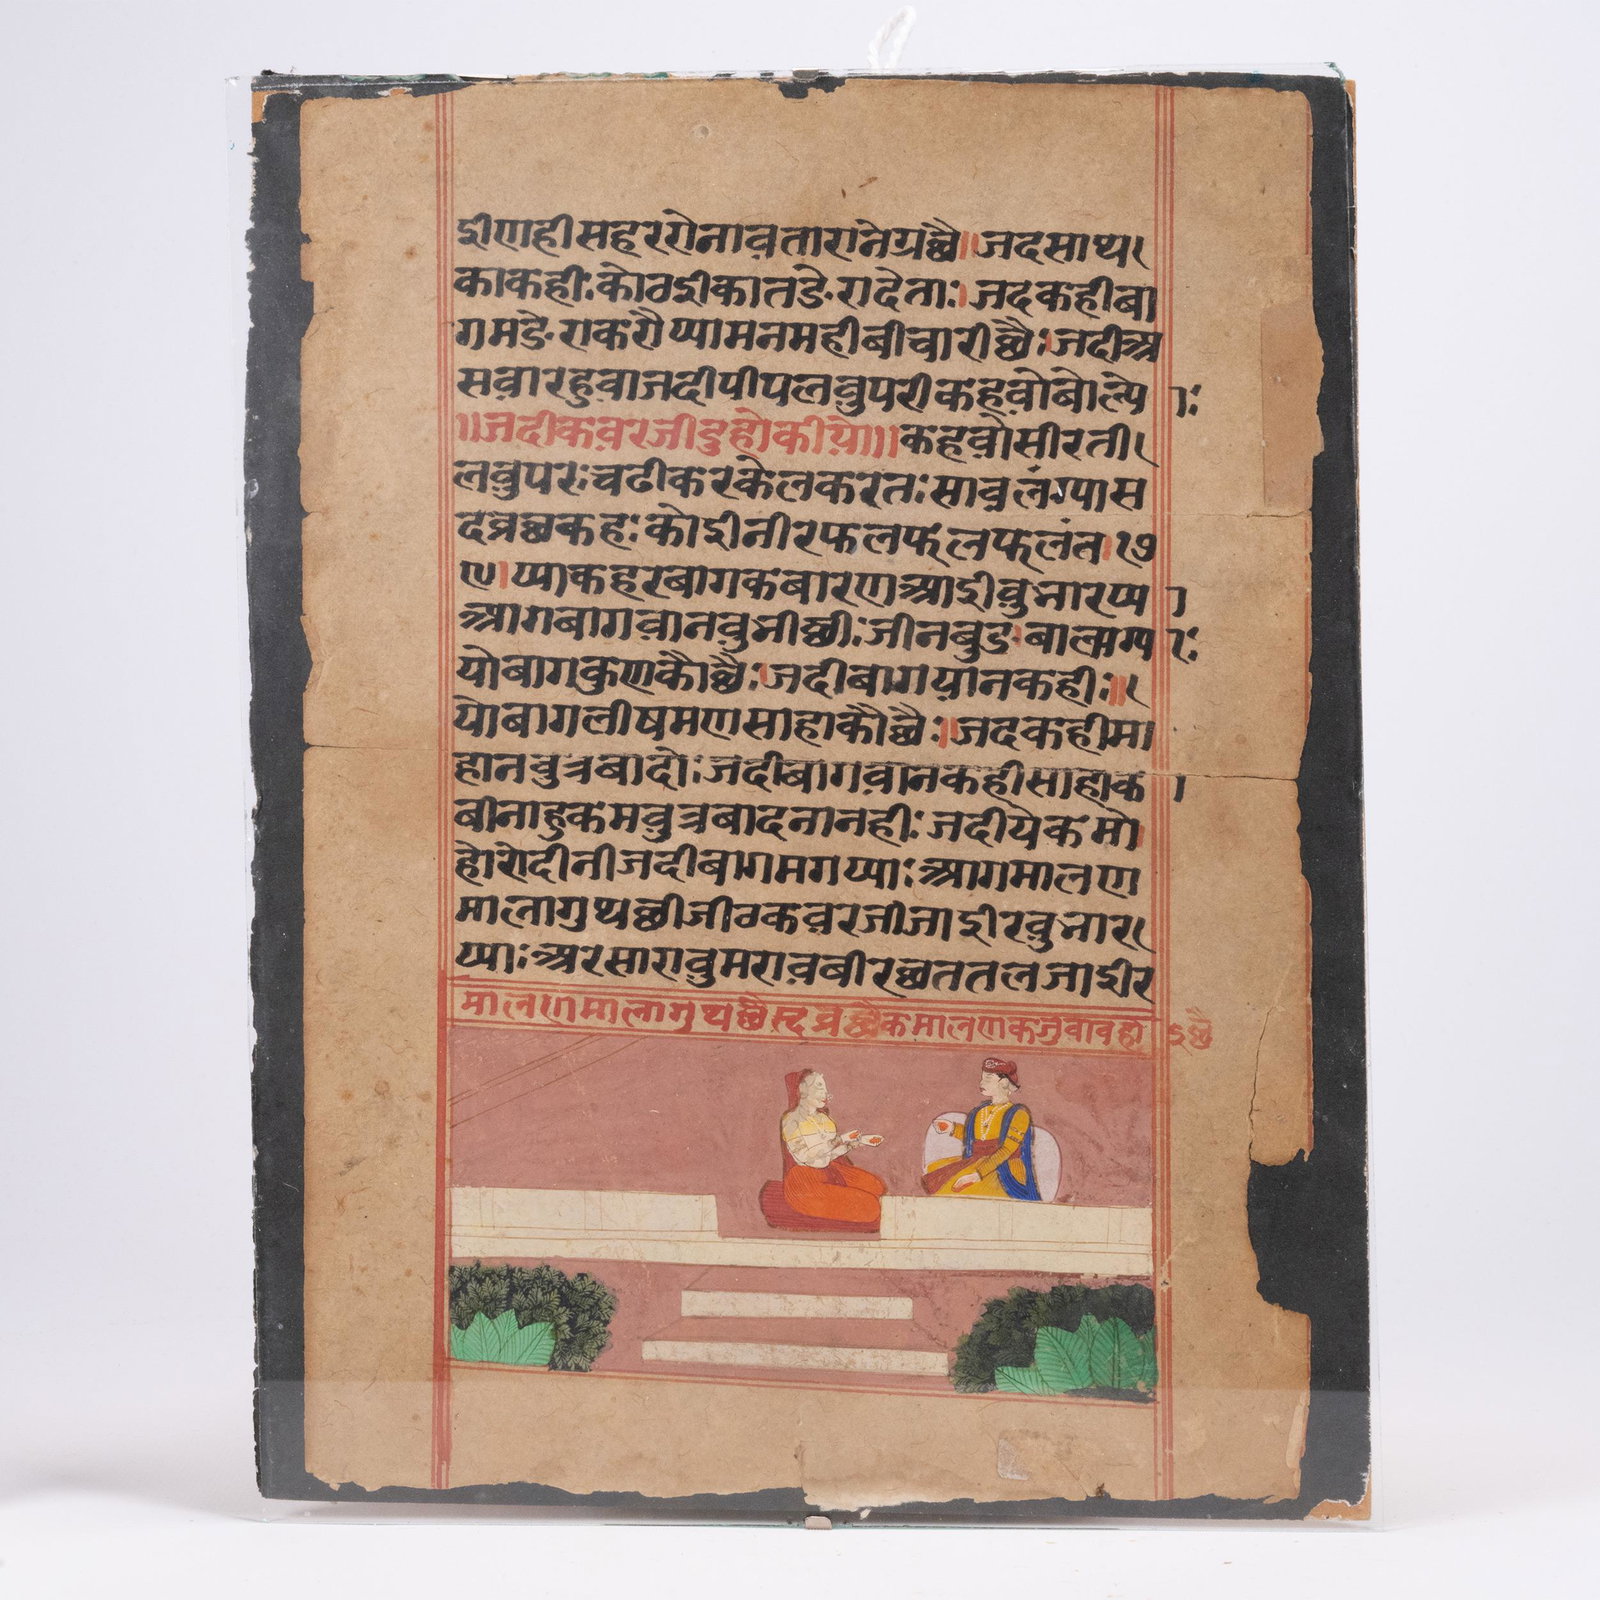 ईणहीसहररोनावतारानेग्रछै॥जदसाथ।
काकही:कोठईकातडेरादेता:।जदकहीबा
गमडेराकरौप्पामनमहीबीचारीछै:।जदीअ
सवारहुवाजदीपीपलवुपरीकहवोबोल्पो:
॥जदीकवरजीदुहोकीयो॥कहवोसीरती।
लवुपर:चढीकरकेलकरत:सावलंग्पास
दव्रछकह:कोईनीरफलफलफलंत।१७
९।प्पाकहरबागकबारणआईवुभारप्पा
आगबागवानवुभीछी:जीनबुडबालाग्पा:
योबागकुणकौछै:।जदीबागवानकही:॥
योबागलीषमणसाहाकौछै:॥जदकहीमा
हानवुत्रबादो:जदीबागवानकहीसाहाका
बीनाहुकमवुत्रबादनानही:जदीयेकमो
होरोदीनीजदीबागमगप्पा:आगमालण
मालागुथछीजीठकवरजीजाईरवुभार।
प्पा:अरसारावुमरावबीरछततलजाईर
मालणमालागुथछैसदव्रछकमालणकजुवाबहोइछै